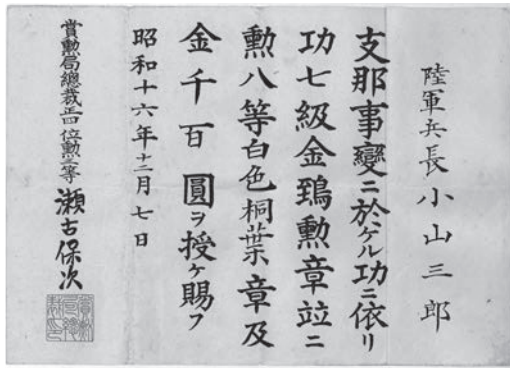 陸軍兵長小山三郎
支那事變ニ於ケル功ニ依リ
功七級金鵄勲章竝ニ
勲八等白色桐葉章及
金千百圓ヲ授ケ賜フ
昭和十六年十二月七日
賞勲局總裁正四位勲二等瀬古保次